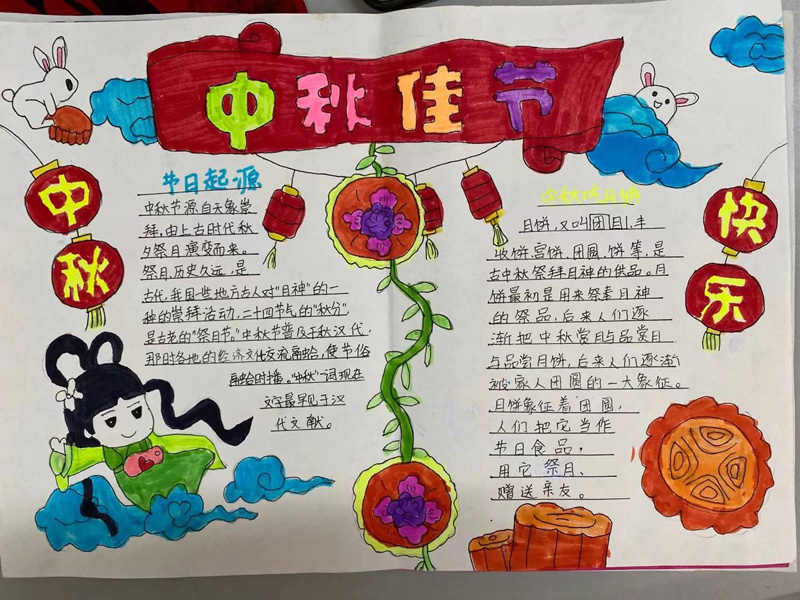 中秋佳节
中秋
快乐
节日起源
中秋节源自天象崇
拜,由上古时代秋
夕祭月演变而来。
祭月,历史久远,是
古代,我国一些地方古人对“月神”的一
种的崇拜活动,二十四节气的“秋分”,
是古老的“祭月节。”中秋节普及于秋汉代.
那时各地的经济文化交流融蛤,使节俗
融蛤时播。“中秋”一词,现在
文字最早见于汉
代文献。
中秋
月饼,又叫团圆.丰
收饼.宫饼.团圆.饼等,是
古中秋祭拜月神的供品。月
饼最初是用来祭奉月神
的祭品,后来人们逐
渐把中秋赏月与品赏月
与品尝月饼,后来人们逐渐
被家人团圆的一大象征。
月饼象征着团圆,
人们把它当作
节日食品,
用它祭月、
赠送亲友。